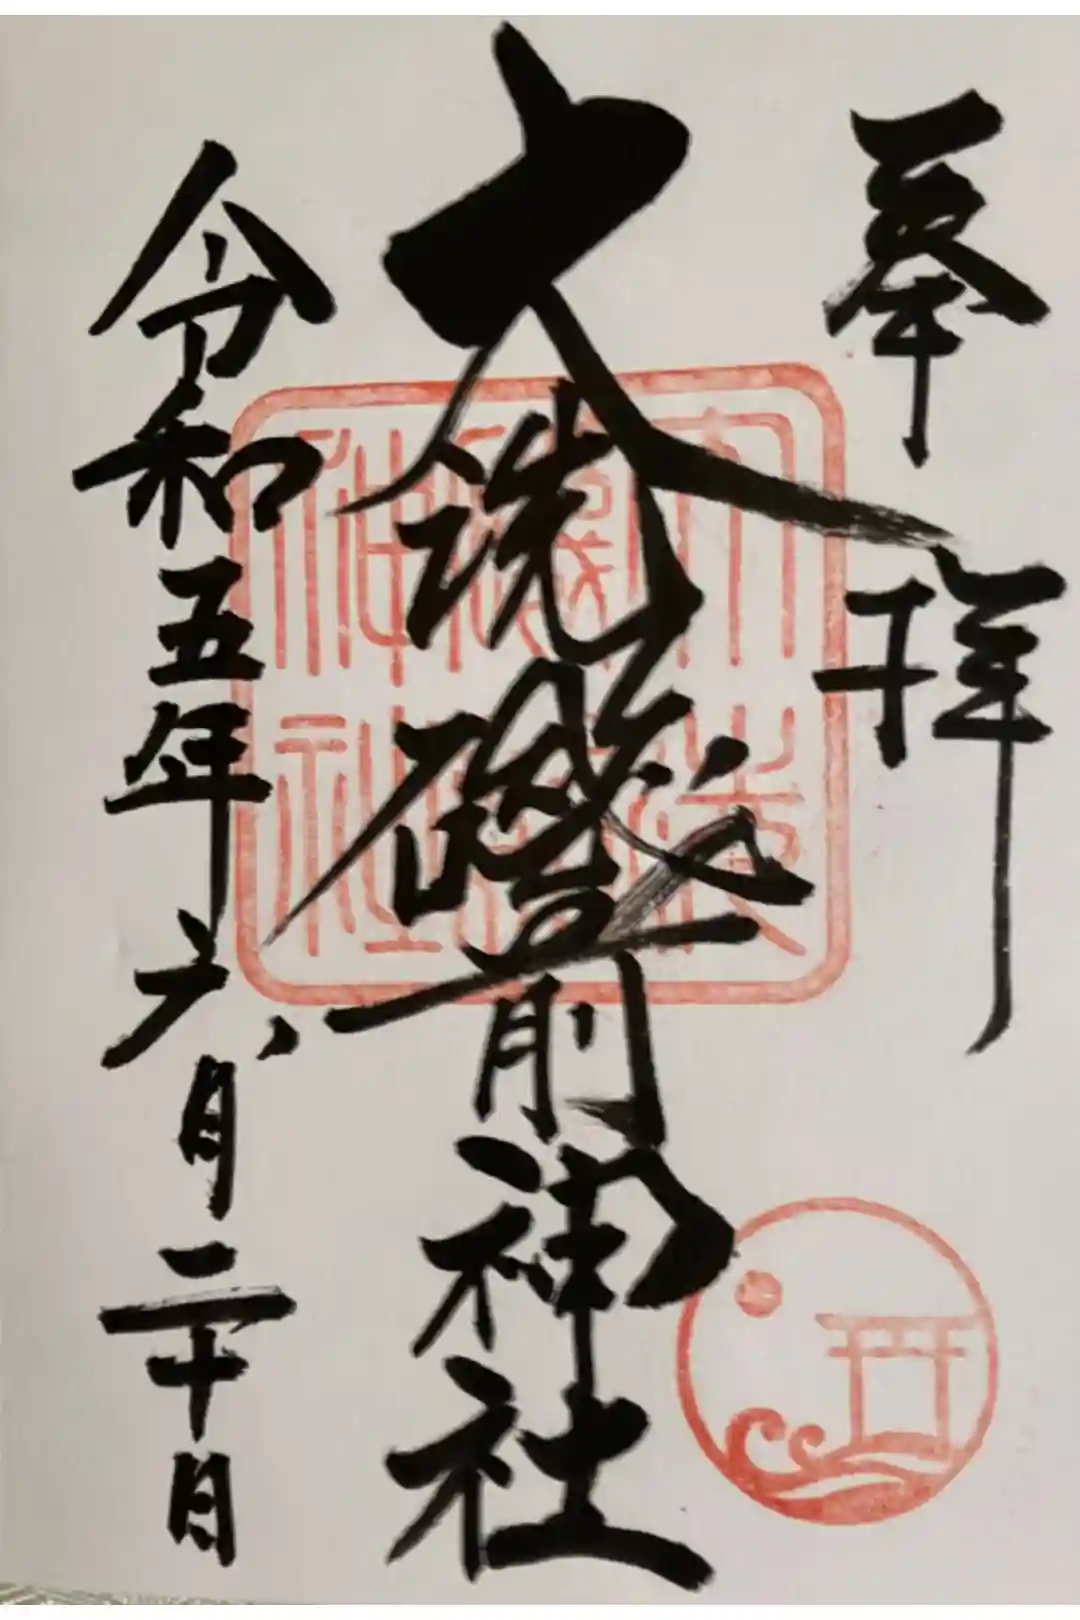 奉拝
大洗磯前神社
令和五年六月二十日
大洗
磯前
神社